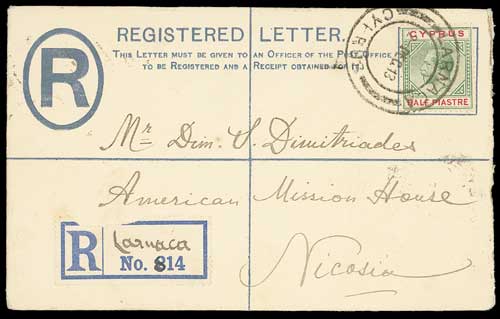 REGISTERED LETTER.
THIS LETTER MUST BE GIVEN TO AN OFFICER OF THE POST OFFICE
TO BE REGISTERED AND A RECEIPT OBTAINED FOR
R
CYPRUS
HALF PIASTRE
LARNACA
CYPRUS
13
Mr Dim. S. Dimitriades
American Mission House
Nicosia
R
Larnaca
No. 814